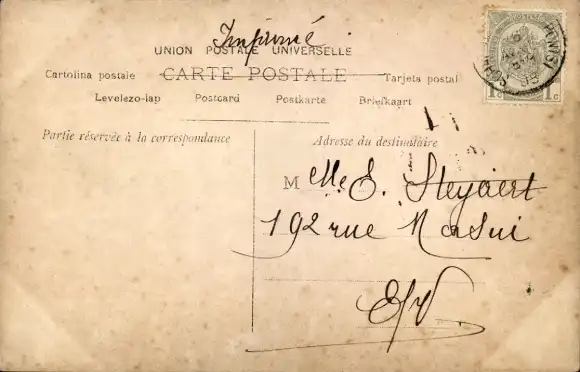 Imprimé
UNION POSTALE UNIVERSELLE
Cartolina postale CARTE POSTALE Tarjeta postal
Levelezo-lap Postcard Postkarte Briefkaart
Partie réservée à la correspondance
Adresse du destinataire
Mlle E. Steyaert
192 rue Masui
E/V
1c 1c